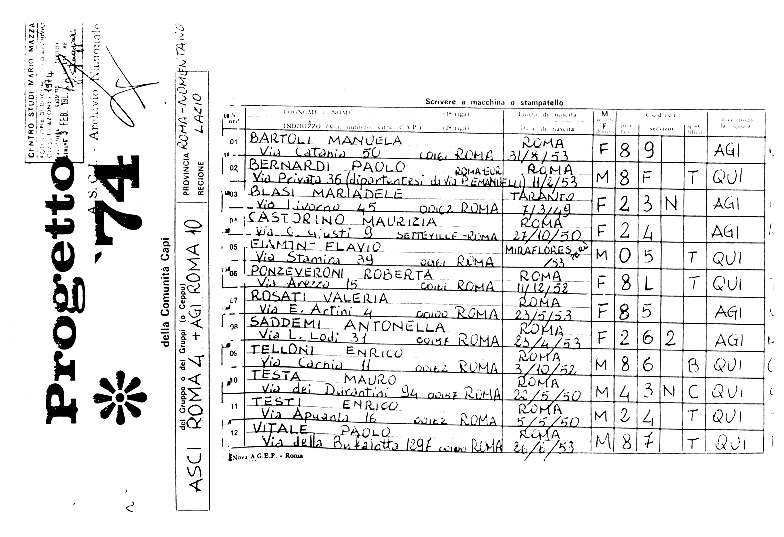 CENTRO STUDI MARIO MAZZA
A. S. G. I. - Archivio Nazionale
Progetto '74
della Comunità Capi
del Gruppo o dei Gruppi (o Ceppo)
ASCI ROMA 4 + AGI ROMA 10
PROVINCIA ROMA-NOMENTANO
REGIONE LAZIO
Scrivere a macchina o stampatello
COGNOME e NOME (1ª riga) Luogo di nascita M Codici
INDIRIZZO (2ª riga) Data di nascita F servizio
01 BARTOLI MANUELA ROMA F 8 9 AGI
Via Catania 50 00161 ROMA 31/8/53
02 BERNARDI PAOLO ROMA EUR ROMA M 8 F T QUI
Via Privata 36 (dipartentesi di via P. EMANUELLI) 11/2/53
03 BLASI MARIADELE TARANTO F 2 3 N AGI
Via Livorno 45 00162 ROMA 7/3/49
CASTORINO MAURIZIA ROMA F 2 4 AGI
Via G. Giusti 9 SETTEVILLE-ROMA 27/10/50
05 FLAVIO MIRAFLORES M 0 5 T QUI
Via Stamira 39 00161 ROMA /53
06 PONZEVERONI ROBERTA ROMA F 8 L T QUI
Via Arezzo 15 00161 ROMA 11/12/52
07 ROSATI VALERIA ROMA F 8 5 AGI
Via E. Artini 4 ROMA 23/5/53
SADDEMI ANTONELLA ROMA F 2 6 2 AGI
Via L. Lodi 31 00157 ROMA 23/4/53
09 TELLONI ENRICO ROMA M 8 6 B QUI
Via Carnia 11 00162 ROMA 3/10/52
10 TESTA MAURO ROMA M 4 3 N C QUI
Via dei Durantini 94 00157 ROMA 22/5/50
11 TESTI ENRICO ROMA M 2 4 T QUI
Via Apuania 16 00162 ROMA 5/5/50
12 VITALE PAOLO ROMA M 8 7 T QUI
Via della Bufalotta 1297 ROMA
Nova A.G.E.P. - Roma